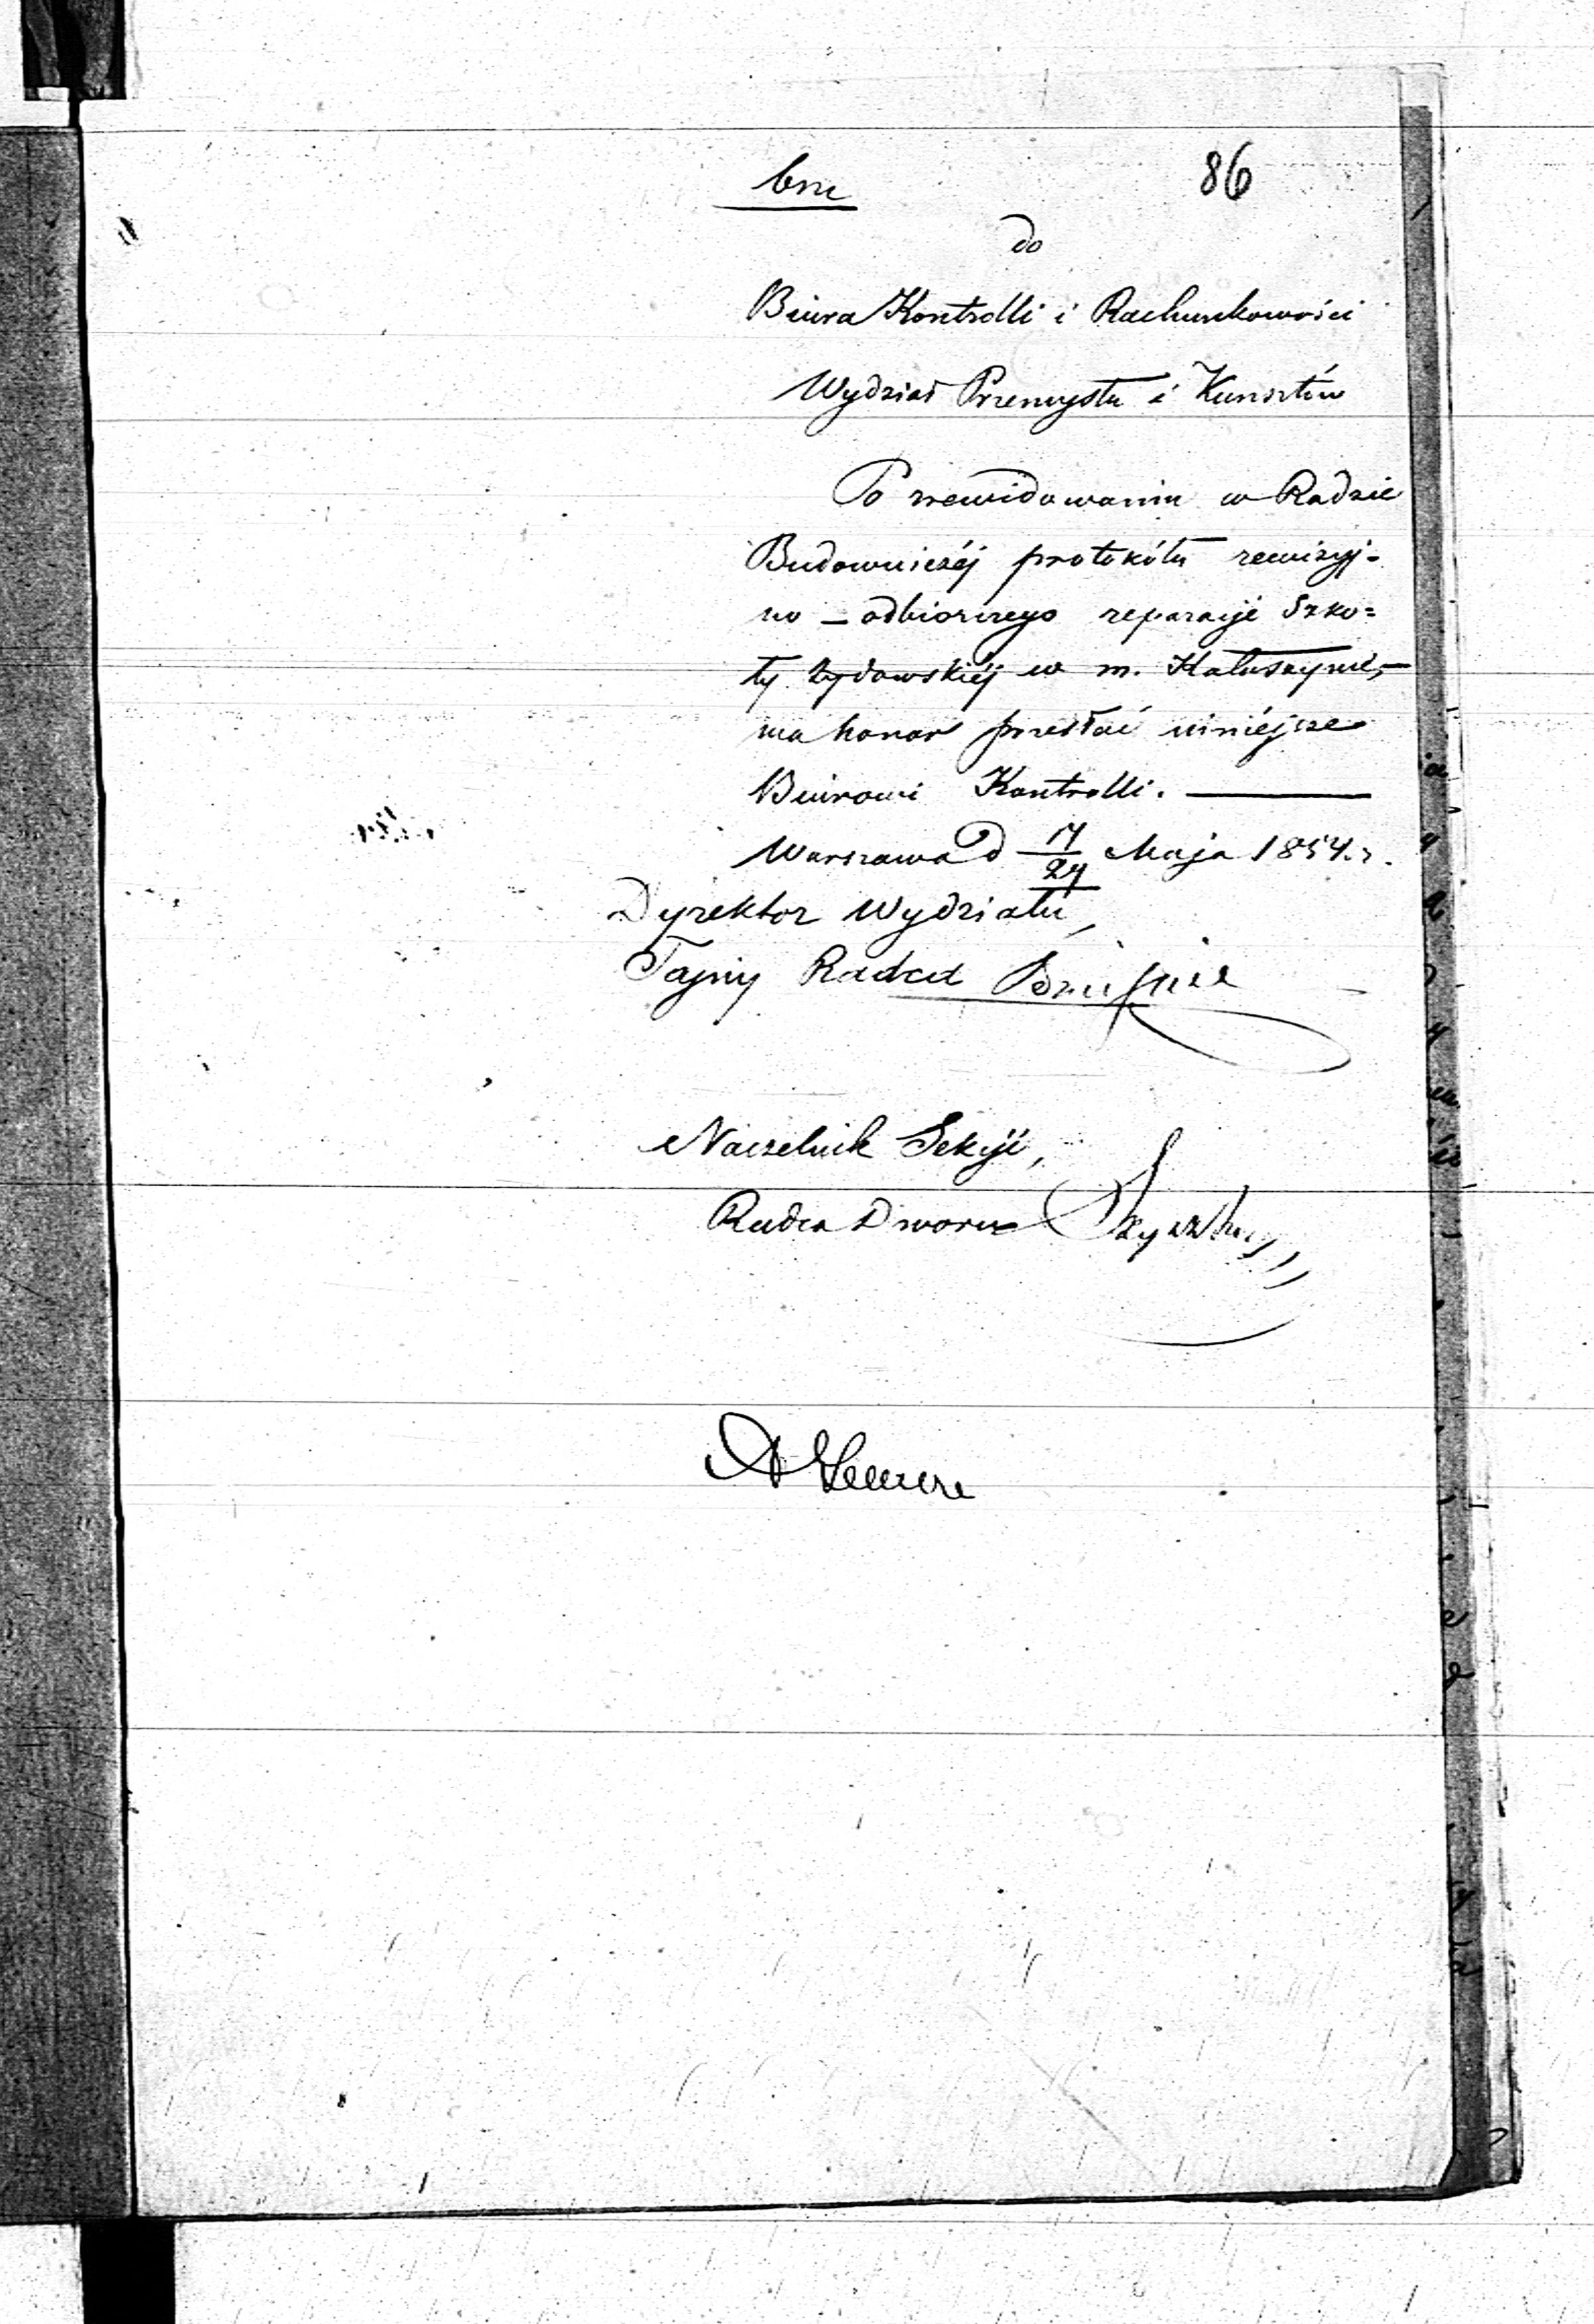 bm
86
do
Biura Kontrolli i Rachunkowości
Wydział Przemysłu i Kunsztów
Po zrewidowaniu w Radzie
Budowniczéj protokółu rewizyj=
no - odbiorczego reparacyi Szko=
ły żydowskiéj w m. Kałuszynie,
ma honor przesłać niniejsze
Biurowi Kontrolli.
Warszawa d 17/29 Maja 1854 r.
Dyrektor Wydziału,
Tajny Radca
Naczelnik Sekcyi,
Radca Dworu